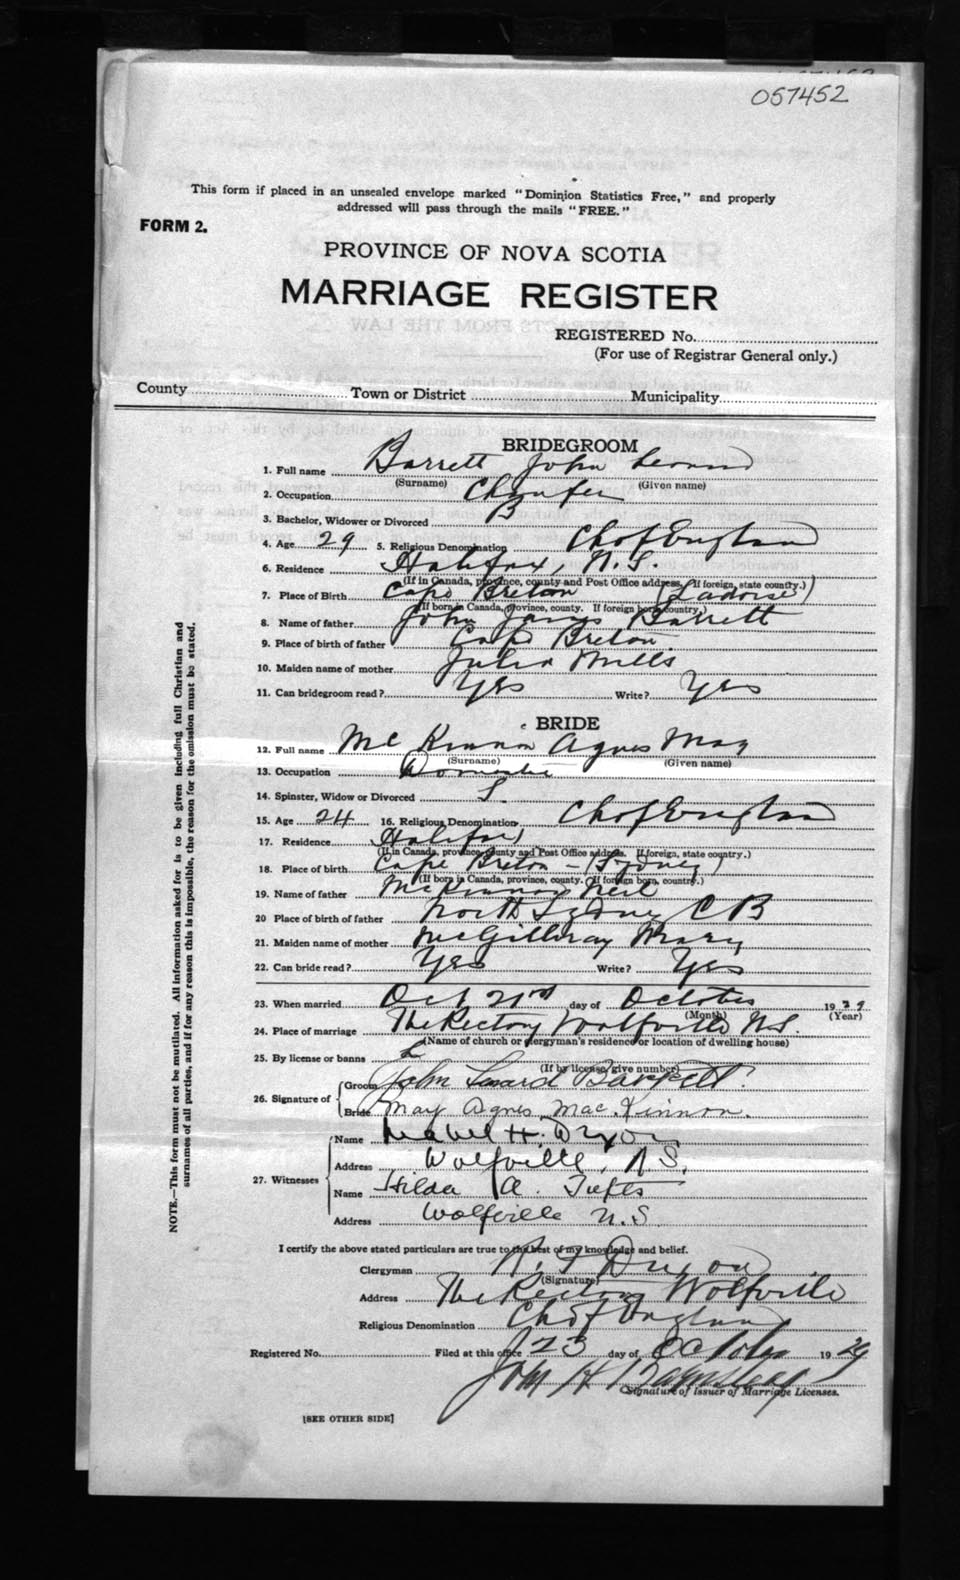 057452
This form if placed in an unsealed envelope marked "Dominion Statistics Free," and properly
addressed will pass through the mails "FREE."
FORM 2.
PROVINCE OF NOVA SCOTIA
MARRIAGE REGISTER
REGISTERED No.
(For use of Registrar General only.)
County Town or District Municipality
BRIDEGROOM
1. Full name Barrett John Leonard
(Surname) (Given name)
2. Occupation Chaufer
3. Bachelor, Widower or Divorced B
4. Age 29 5. Religious Denomination Ch of England
6. Residence Halifax, N.S.
(If in Canada, province, county and Post Office address. If foreign, state country.)
7. Place of Birth Cape Breton
(If born in Canada, province, county. If foreign born, country.)
8. Name of father John James Barrett
9. Place of birth of father Cape Breton
10. Maiden name of mother Julia Mills
11. Can bridegroom read? Yes Write? Yes
BRIDE
12. Full name McKinnon Agnes May
(Surname) (Given name)
13. Occupation Domestic
14. Spinster, Widow or Divorced S.
15. Age 24 16. Religious Denomination Ch of England
17. Residence Halifax
(If in Canada, province, county and Post Office address. If foreign, state country.)
18. Place of birth Cape Breton (Sydney)
(If born in Canada, province, county. If foreign born, country.)
19. Name of father McKinnon Neil
20 Place of birth of father North Sydney CB
21. Maiden name of mother McGillivray Mary
22. Can bride read? Yes Write? Yes
23. When married Oct 21rd day of October 1929
(Month) (Year)
24. Place of marriage The Rectory Wolfville N.S.
(Name of church or clergyman's residence or location of dwelling house)
25. By license or banns L
(If by license, give number)
26. Signature of Groom John Lenard Barrett
Bride May Agnes MacKinnon.
27. Witnesses Name Mabel H. Dixon
Address Wolfville, N.S.
Name Hilda A. Tufts
Address Wolfville N.S.
I certify the above stated particulars are true to the best of my knowledge and belief.
Clergyman R. F. Dixon
(Signature)
Address The Rectory Wolfville
Religious Denomination Ch of England
Registered No. Filed at this office 23 day of October 1929
John H
Signature of Issuer of Marriage Licenses.
[SEE OTHER SIDE]
NOTE.—This form must not be mutilated. All information asked for is to be given including full Christian and
surnames of all parties, and if for any reason this is impossible, the reason for the omission must be stated.